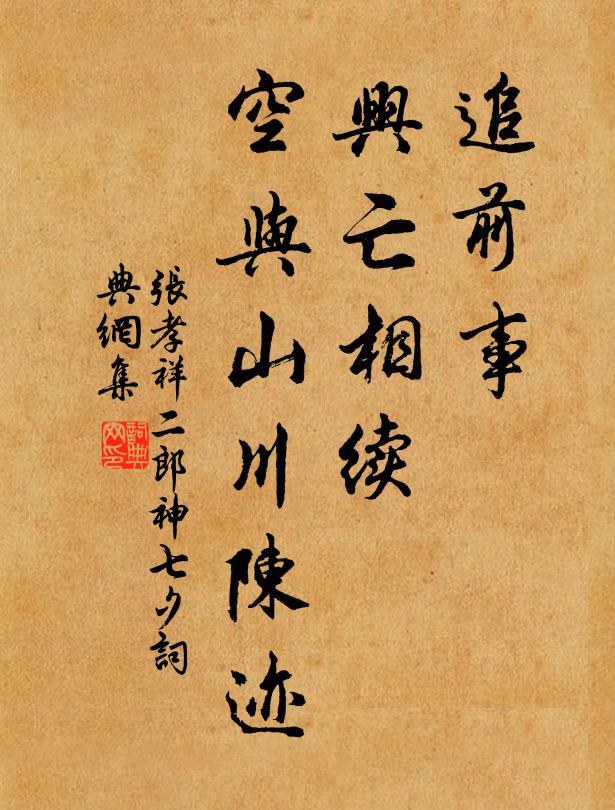 追前事
興亡相续
空與山川陳迹
張孝祥二郎神七夕詞
典網集
詞典网印